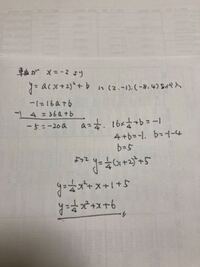 軸が x=-2 より
y=a(x+2)²+b に (2,-1),(-8,4)を代入
-1=16a+b
-) 4=36a+b
-5=-20a a=1/4. 16×1/4+b=-1
4+b=-1. b=-1-4
b=5
よって y=1/4(x+2)²+5
y=1/4x²+x+1+5
y=1/4x²+x+6